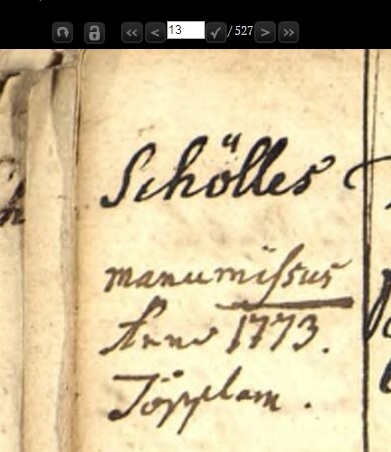 13 / 527
Schölles
manumissus
Anno 1773.
Töpplam.